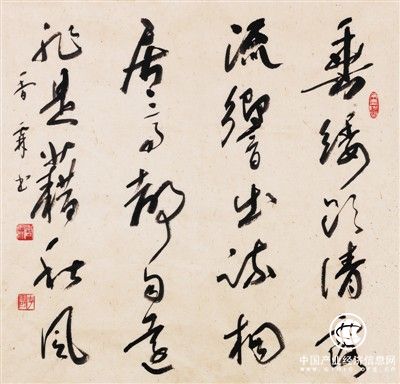 垂緌飲清露
流響出疏桐
居高聲自遠
非是藉秋風
香霖書
中国产业经济信息网
www.cinic.org.cn